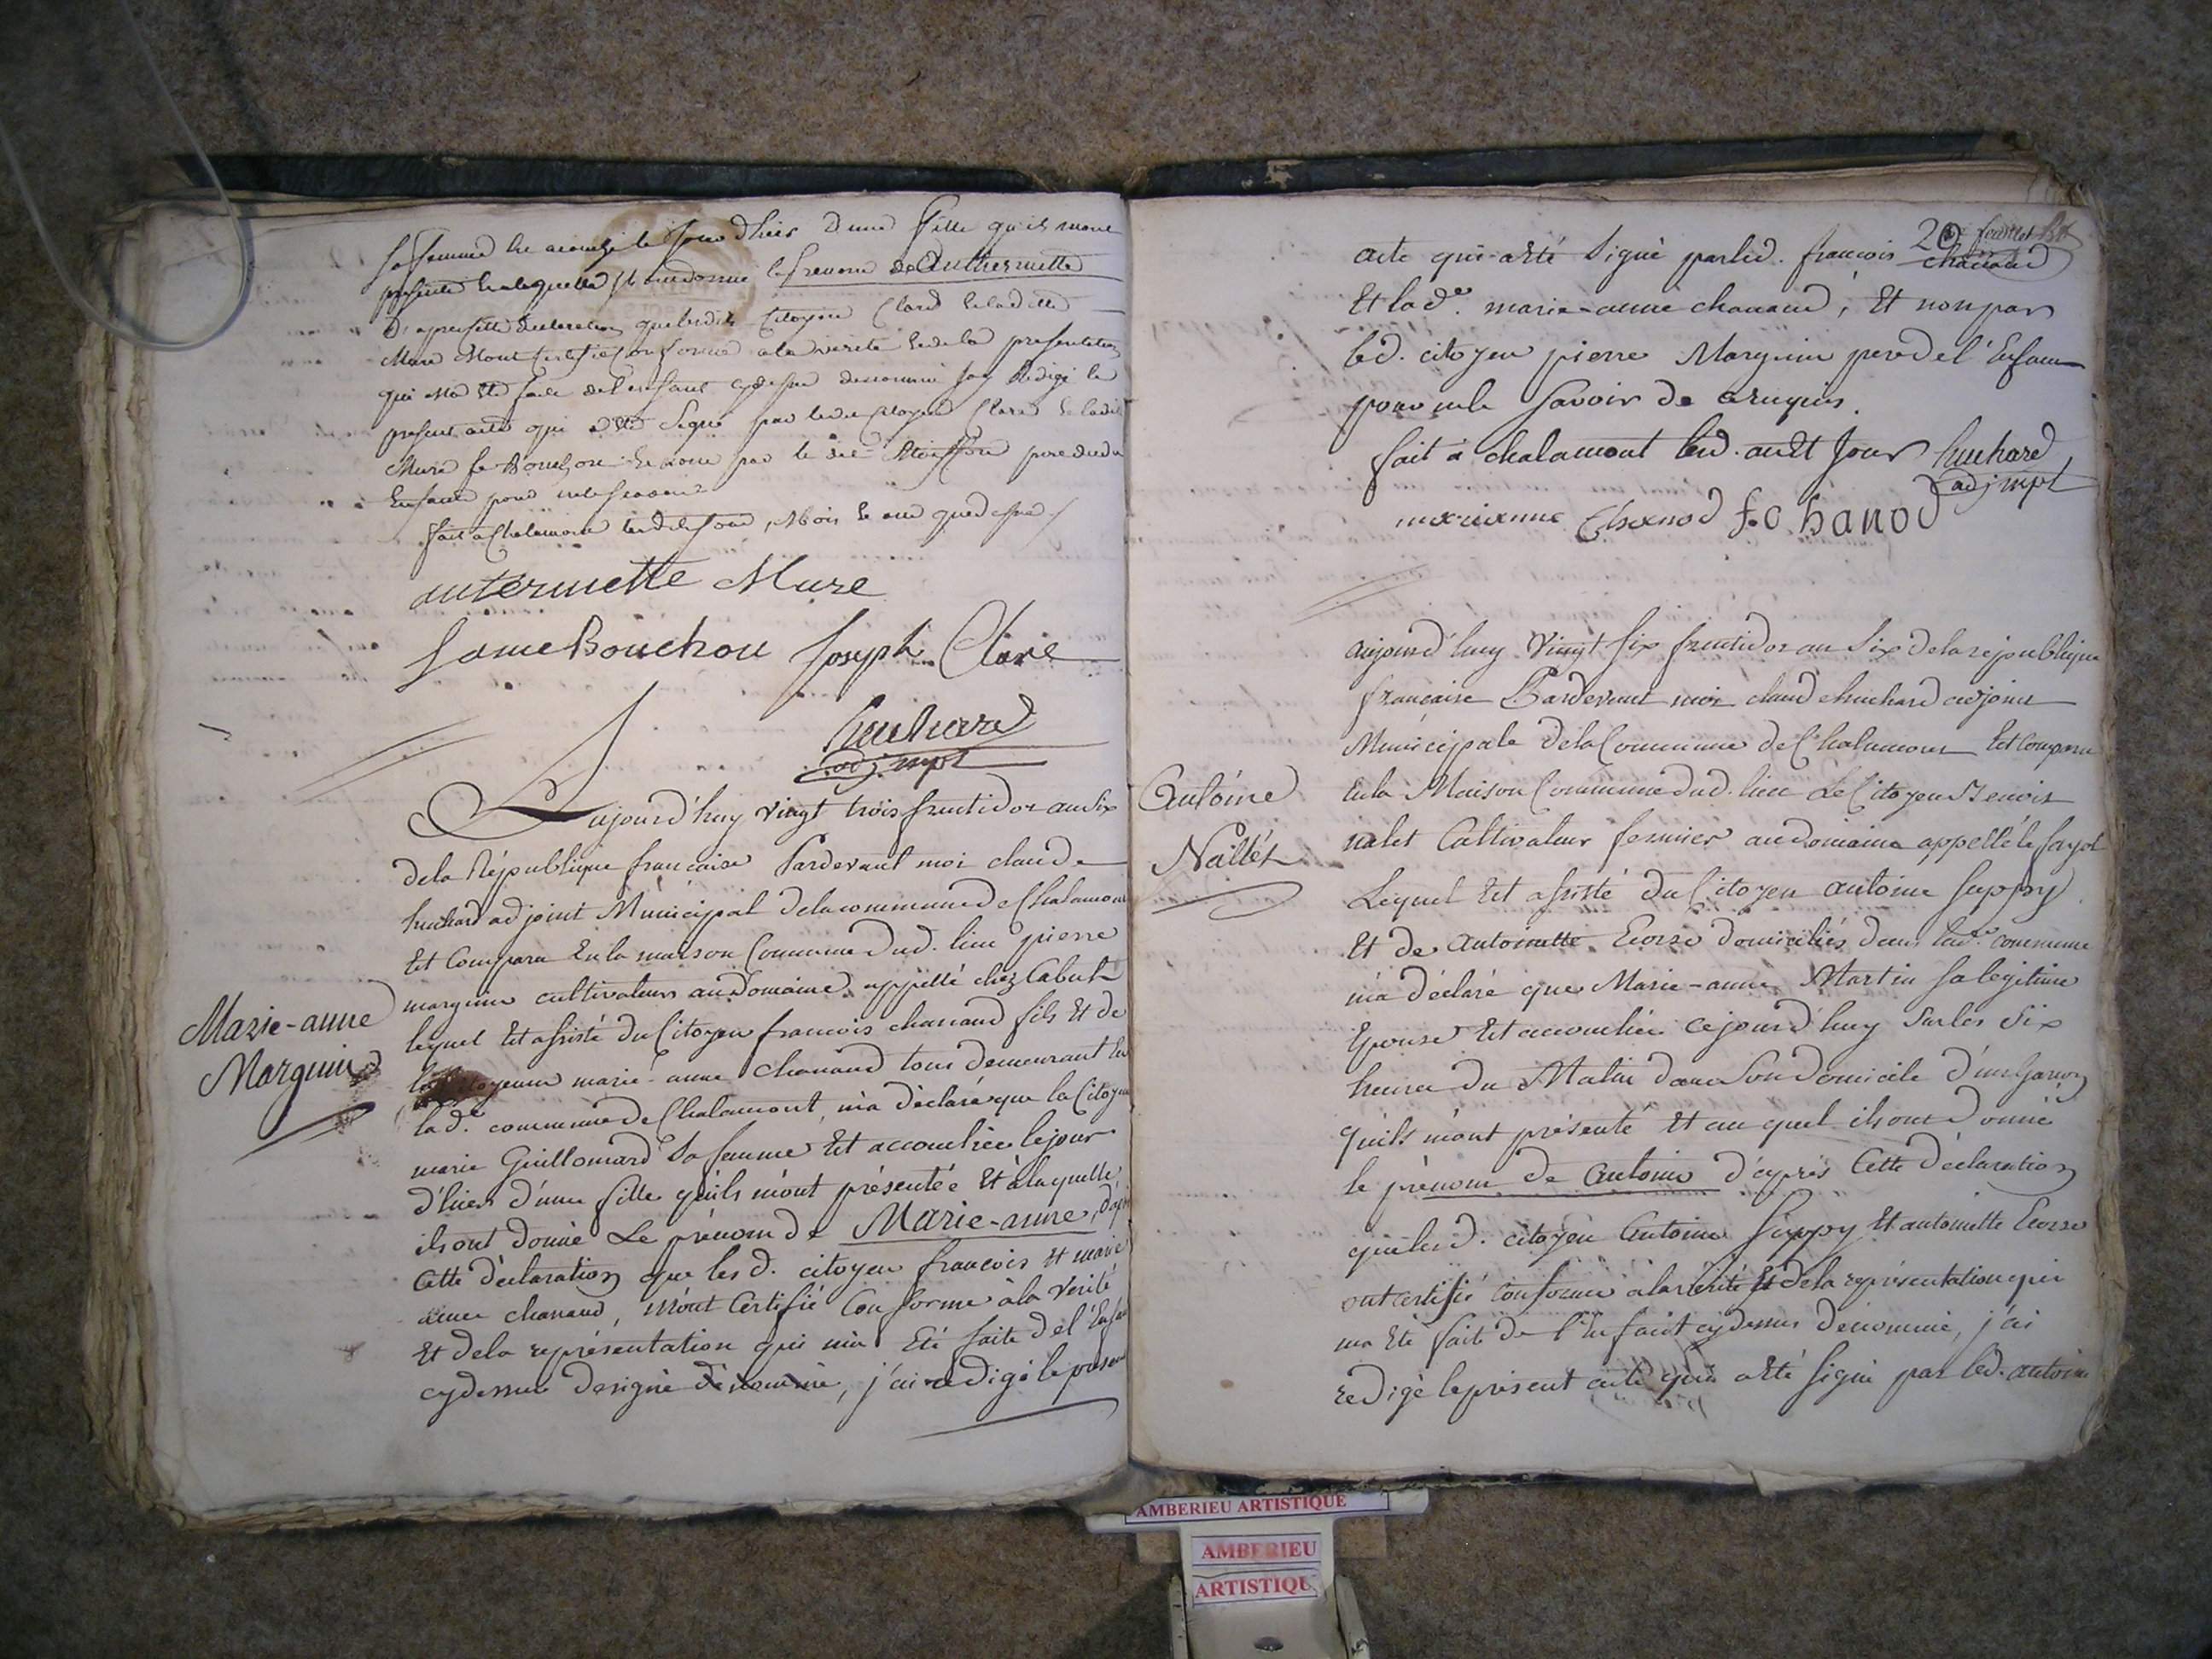 sa femme est accouché le jour d'hier d'une fille qu'ils mont
présenté et a laquelle ils ont donné le prenom de Anthermette
D'apres cette declaration que lesdits Citoyen Clare et ladite
Mure Mont certifié conforme a la verité et de la presentation
qui Ma eté faite de l'enfant cydessus denommé jay Redigé le
present acte qui a eté Signé par ledit Citoyen Clare et ladite
Mure et Bouchon et non par le dit père dudit
Enfant pour
fait a Chalamont lesdits jour, Mois et an que dessus
antermette Mure
Bouchon Joseph Clare
huchard
adj. mpl
Aujourd'huy vingt trois fructidor an six
de la République francaise Pardevant moi claude
huchard adjoint Municipal de la commune de Chalamont
Est Comparu En la maison Commune dud. lieu pierre
marguin cultivateur au Domaine appellé chez Cabut
lequel Est assisté du Citoyen francois chanaud fils Et de
la Citoyenne marie-anne chanaud tous demeurant En
lad.e commune de Chalamont, m'a déclaré que la Citoyenne
marie Guillomard sa femme Est accouchée le jour
d'hier d'une fille qu'ils m'ont présentée Et à laquelle
ils ont donné Le prénom de Marie-anne, d'après
Cette déclaration que les d. citoyen francois Et marie
anne chanaud, m'ont Certifié Conforme à la Verité
Et de la représentation qui m'a Eté faite de l'Enfant
cydessus designé dénommé, j'ai redigé le présent
Marie-anne
Marguin
20e feuillet
acte qui a été signé par led. francois chanaud
Et lad.e marie-anne chanaud, Et non par
led. citoyen pierre Marguin pere de l'Enfant
pour ne le savoir de requis.
fait à chalamont lesd. an Et Jour huchard
adj mpl
marianne Chanod f. chanod
Antoine
Nallét
aujourd'huy vingt six fructidor an six de la république
française Pardevant moi claud chuchard adjoint
Municipale de la Commune de Chalamont Est Comparu
En la Maison Commune dud. lieu Le Citoyen Benoit
nalet Cultivateur fermier au domaine appellé le fayol
Lequel Est assisté du Citoyen antoine
Et de Antoinette domiciliés dans lad.e commune
m'a déclaré que Marie-anne Martin sa legitime
Epouse Est accouchée cejourd'huy sur les six
heures du Matin dans son domicile d'un Garçon
qu'ils m'ont présenté Et au quel ils ont donné
le prénom de Antoine d'après Cette déclaration
que les d. citoyen Antoine Et antoinette
ont certifié conforme a la vérité Et de la représentation qui
ma Eté fait de l'Enfant cydessus dénommé, j'ai
redigé le présent acte qui a été signé par led. antoine
AMBERIEU ARTISTIQUE
AMBERIEU
ARTISTIQU